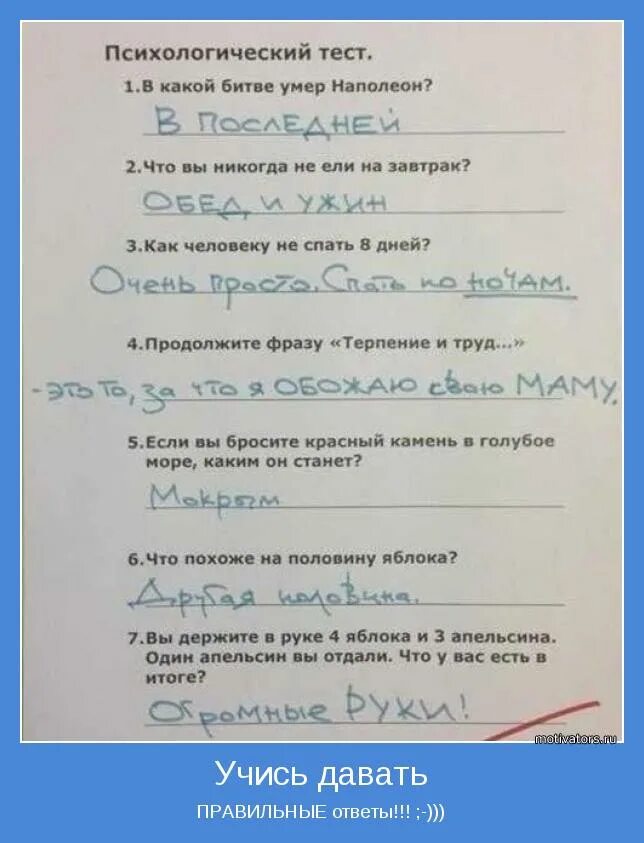 Психологический тест.
1.В какой битве умер Наполеон?
В ПОСЛЕДНЕЙ
2.Что вы никогда не ели на завтрак?
ОБЕД И УЖИН
3.Как человеку не спать 8 дней?
Очень просто. Спать по НОЧАМ.
4.Продолжите фразу «Терпение и труд...»
-ЭТО ТО, за что я ОБОЖАЮ сваю МАМУ.
5.Если вы бросите красный камень в голубое
море, каким он станет?
Мокрым
6.Что похоже на половину яблока?
Другая половина.
7.Вы держите в руке 4 яблока и 3 апельсина.
Один апельсин вы отдали. Что у вас есть в
итоге?
Огромные РУКИ!
motivators.ru
Учись давать
ПРАВИЛЬНЫЕ ответы!!! ;-)))